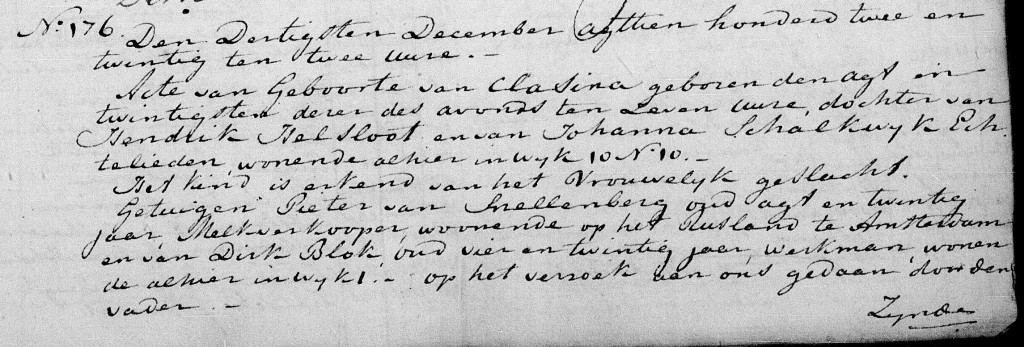 No. 176. Den Dertigsten December agttien honderd twee en
twintig ten twee uure. -
Acte van Geboorte van Clasina geboren den agt en
twintigsten dezer des avonds ten Zeven uure, dochter van
Hendrik Helsloot en van Johanna Schalkwyk Ech
telieden, wonende alhier in Wyk 10 No. 10. -
Het kind is erkend van het Vrouwelyk geslacht.
Getuigen Pieter van Snellenberg oud agt en twintig
jaar, Melkverkooper, woonende op het Rusland te Amsterdam
en van Dirk Blok, oud vier en twintig jaar, werkman, wonen
de alhier in wyk 1. - op het verzoek aan ons gedaan door den
vader. -
Zynde